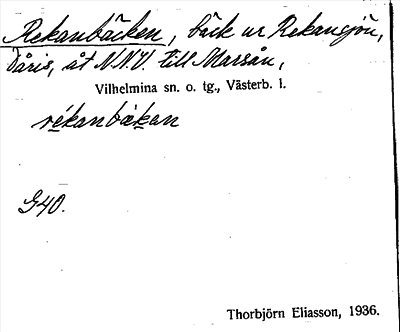 Rekanbäcken, bäck ur Rekansjön,
Dåris, åt N.N.V. till Marsån,
Vilhelmina sn. o. tg., Västerb. l.
rékanbækan
G40.
Thorbjörn Eliasson, 1936.